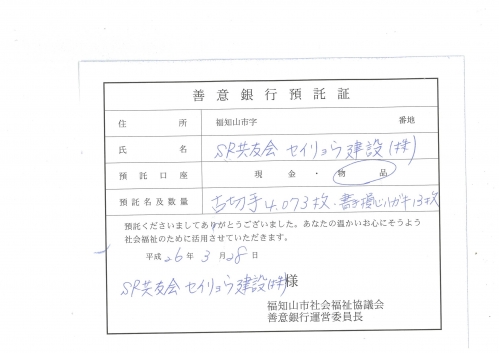 善意銀行預託証
住所 福知山市字 番地
氏名 SR共友会 セイリョウ建設(株)
預託口座 現金・物品
預託名及数量 古切手4,073枚・書き損じハガキ13枚
預託くださいましてありがとうございました。あなたの温かいお心にそうよう
社会福祉のために活用させていただきます。
平成26年3月28日
SR共友会 セイリョウ建設(株)様
福知山市社会福祉協議会
善意銀行運営委員長